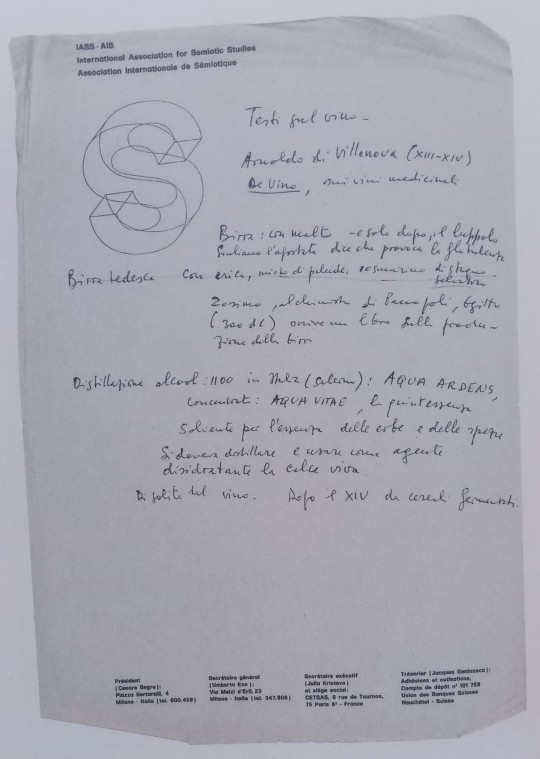 IASS - AIS
International Association for Semiotic Studies
Association Internationale de Sémiotique
Testi sul vino -
Arnaldo di Villanova (XIII-XIV)
De Vino, sui vini medicinali
Birra: con malto - e solo dopo, il luppolo
Giuliano l'apostata dice che provoca la flatulenza
Birra tedesca con erica, mirto di palude, rosmarino di stagno
selvatico
Zosimo, alchimista di Panopoli, Egitto
(300 dC) scrive un libro sulla produ-
zione della birra
Distillazione alcool: 1100 in Italia (Salerno): AQUA ARDENS,
concentrato: AQUA VITAE, la quintessenza
Solvente per l'essenza delle erbe e delle spezie
Si doveva distillare e usare come agente
disidratante la calce viva
Di solito dal vino. Dopo il XIV da cereali fermentati.
Président
(Cesare Segre):
Piazza Bertarelli, 4
Milano - Italie (tel. 900.459)
Secrétaire général
(Umberto Eco):
Via Melzi d'Eril, 23
Milano - Italie (tel. 347.806)
Secrétaire exécutif
(Julia Kristeva)
et siège social:
CETSAS, 6 rue de Tournon,
75 Paris 6e - France
Trésorier (Jacques Geninasca):
Adhésions et cotisations,
Compte de dépôt n° 101 758
Union des Banques Suisses
Neuchâtel - Suisse